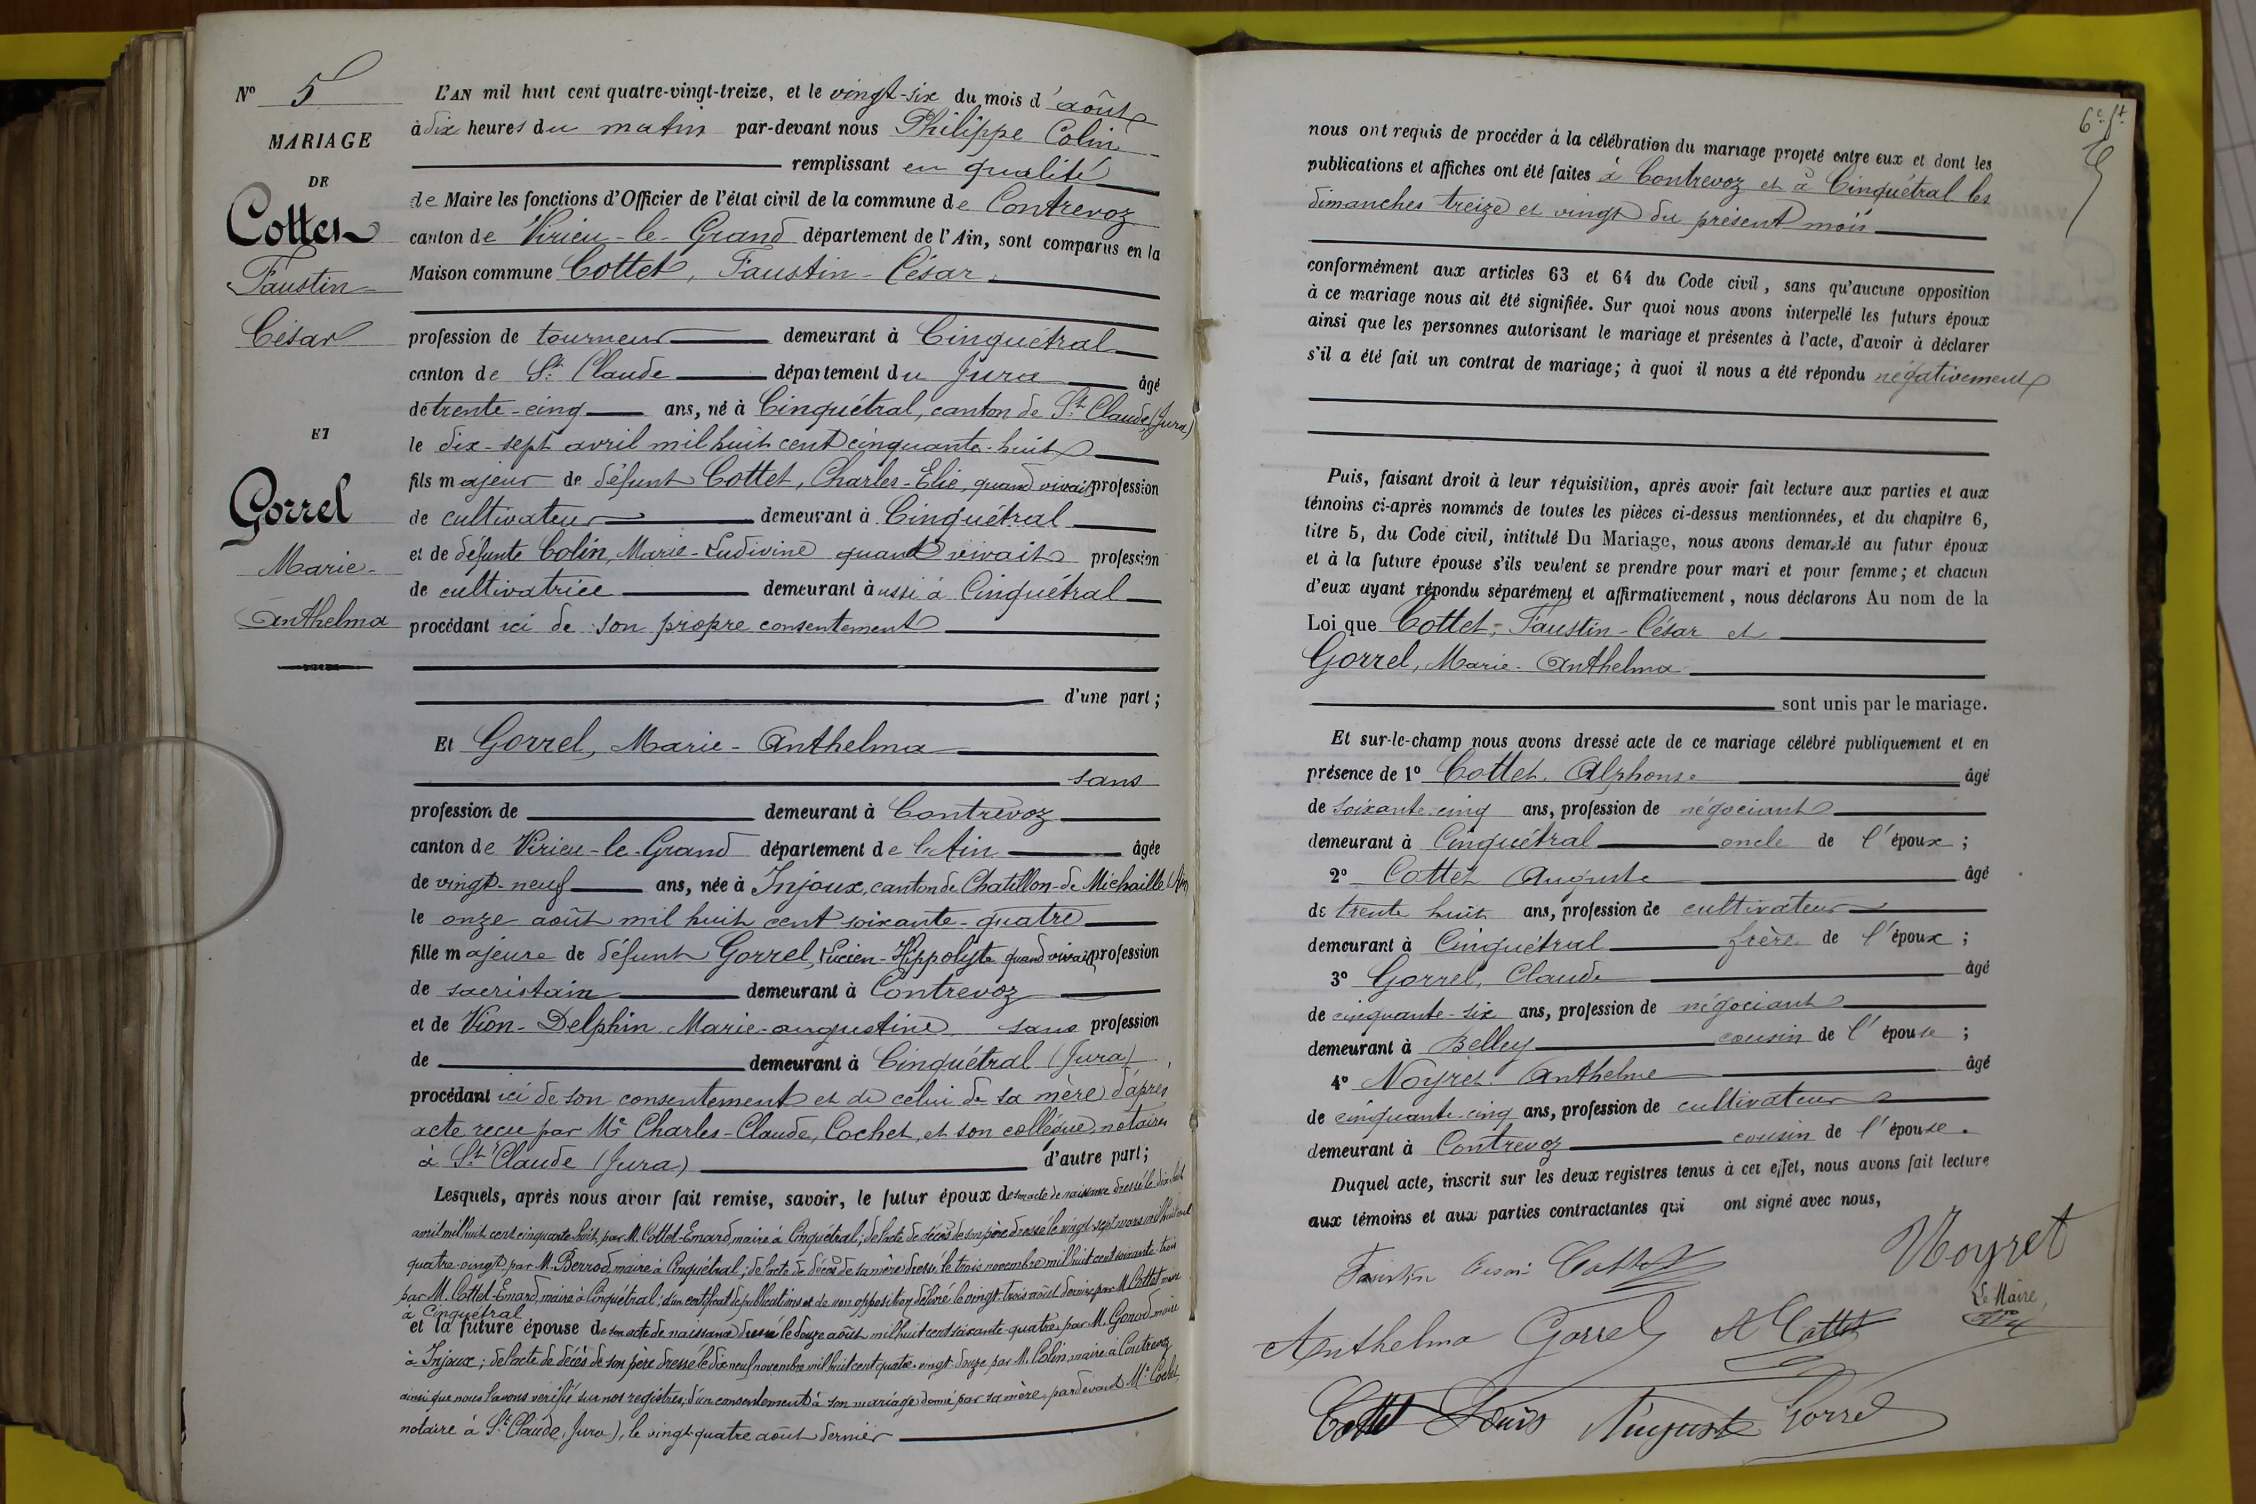 N° 5
MARIAGE
DE
Cottet
Faustin-
César
ET
Gorrel
Marie-
Anthelma
L'AN mil huit cent quatre-vingt-treize, et le vingt-six du mois d'août
à dix heures du matin par-devant nous Philippe Colin
remplissant en qualité
de Maire les fonctions d'Officier de l'état civil de la commune de Contrevoz
canton de Virieu-le-Grand département de l'Ain, sont comparus en la
Maison commune Cottet, Faustin-César
profession de tourneur demeurant à Cinquétral
canton de St Claude département du Jura âgé
de trente-cinq ans, né à Cinquétral, canton de St Claude, (Jura)
le dix-sept avril mil huit cent cinquante-huit
fils majeur de défunt Cottet, Charles-Elie, quand vivait profession
de cultivateur demeurant à Cinquétral
et de défunte Colin, Marie-Ludivine quand vivait profession
de cultivatrice demeurant aussi à Cinquétral
procédant ici de son propre consentement
d'une part ;
Et Gorrel, Marie-Anthelma
sans
profession de demeurant à Contrevoz
canton de Virieu-le-Grand département de l'Ain âgée
de vingt-neuf ans, née à Injoux, canton de Chatillon-de-Michaille (Ain)
le onze août mil huit cent soixante-quatre
fille majeure de défunt Gorrel, Lucien-Hippolyte quand vivait profession
de sacristain demeurant à Contrevoz
et de Vion-Delphin Marie-augustine sans profession
de demeurant à Cinquétral (Jura)
procédant ici de son consentement et de celui de sa mère d'après
acte reçu par Me Charles-Claude, Cochet, et son collègue, notaires
à St Claude (Jura) d'autre part ;
Lesquels, après nous avoir fait remise, savoir, le futur époux de son acte de naissance dressé le dix-huit
avril mil huit cent cinquante-huit, par M. Cottet-Emard, maire à Cinquétral ; de l'acte de décès de son père dressé le vingt-sept mars mil huit cent
quatre-vingt, par M. Berrod, maire à Cinquétral ; de l'acte de décès de sa mère dressé le trois novembre mil huit cent soixante-trois
par M. Cottet-Emard, maire à Cinquétral ; d'un certificat de publications et de non opposition, délivré le vingt-trois août dernier par M. Cottet maire
à Cinquétral
et la future épouse de son acte de naissance dressé le douze août mil huit cent soixante-quatre, par M. Gonod, maire
à Injoux ; de l'acte de décès de son père dressé le dix neuf novembre mil huit cent quatre-vingt-douze par M. Colin, maire à Contrevoz
ainsi que nous l'avons vérifié sur nos registres ; d'un consentement à son mariage donné par sa mère, par devant Me Cochet,
notaire à St Claude, Jura), le vingt-quatre août dernier
6e ft
nous ont requis de procéder à la célébration du mariage projeté entre eux et dont les
publications et affiches ont été faites à Contrevoz et à Cinquétral les
dimanches treize et vingt du présent mois
conformément aux articles 63 et 64 du Code civil, sans qu'aucune opposition
à ce mariage nous ait été signifiée. Sur quoi nous avons interpellé les futurs époux
ainsi que les personnes autorisant le mariage et présentes à l'acte, d'avoir à déclarer
s'il a été fait un contrat de mariage ; à quoi il nous a été répondu négativement
Puis, faisant droit à leur réquisition, après avoir fait lecture aux parties et aux
témoins ci-après nommés de toutes les pièces ci-dessus mentionnées, et du chapitre 6,
titre 5, du Code civil, intitulé Du Mariage, nous avons demandé au futur époux
et à la future épouse s'ils veulent se prendre pour mari et pour femme ; et chacun
d'eux ayant répondu séparément et affirmativement, nous déclarons Au nom de la
Loi que Cottet, Faustin-César et
Gorrel, Marie-Anthelma
sont unis par le mariage.
Et sur-le-champ nous avons dressé acte de ce mariage célébré publiquement et en
présence de 1° Cottet Alphonse âgé
de soixante-cinq ans, profession de négociant
demeurant à Cinquétral oncle de l'époux ;
2° Cottet Auguste âgé
de trente huit ans, profession de cultivateur
demeurant à Cinquétral frère de l'époux ;
3° Gorrel, Claude âgé
de cinquante-six ans, profession de négociant
demeurant à Belley cousin de l'épouse ;
4° Noyret Anthelme âgé
de cinquante-cinq ans, profession de cultivateur
demeurant à Contrevoz cousin de l'épouse.
Duquel acte, inscrit sur les deux registres tenus à cet effet, nous avons fait lecture
aux témoins et aux parties contractantes qui ont signé avec nous,
Faustin César Cottet
Noyret
Le Maire,
Anthelma Gorrel A Cottet
Cottet Louis Auguste Gorrel